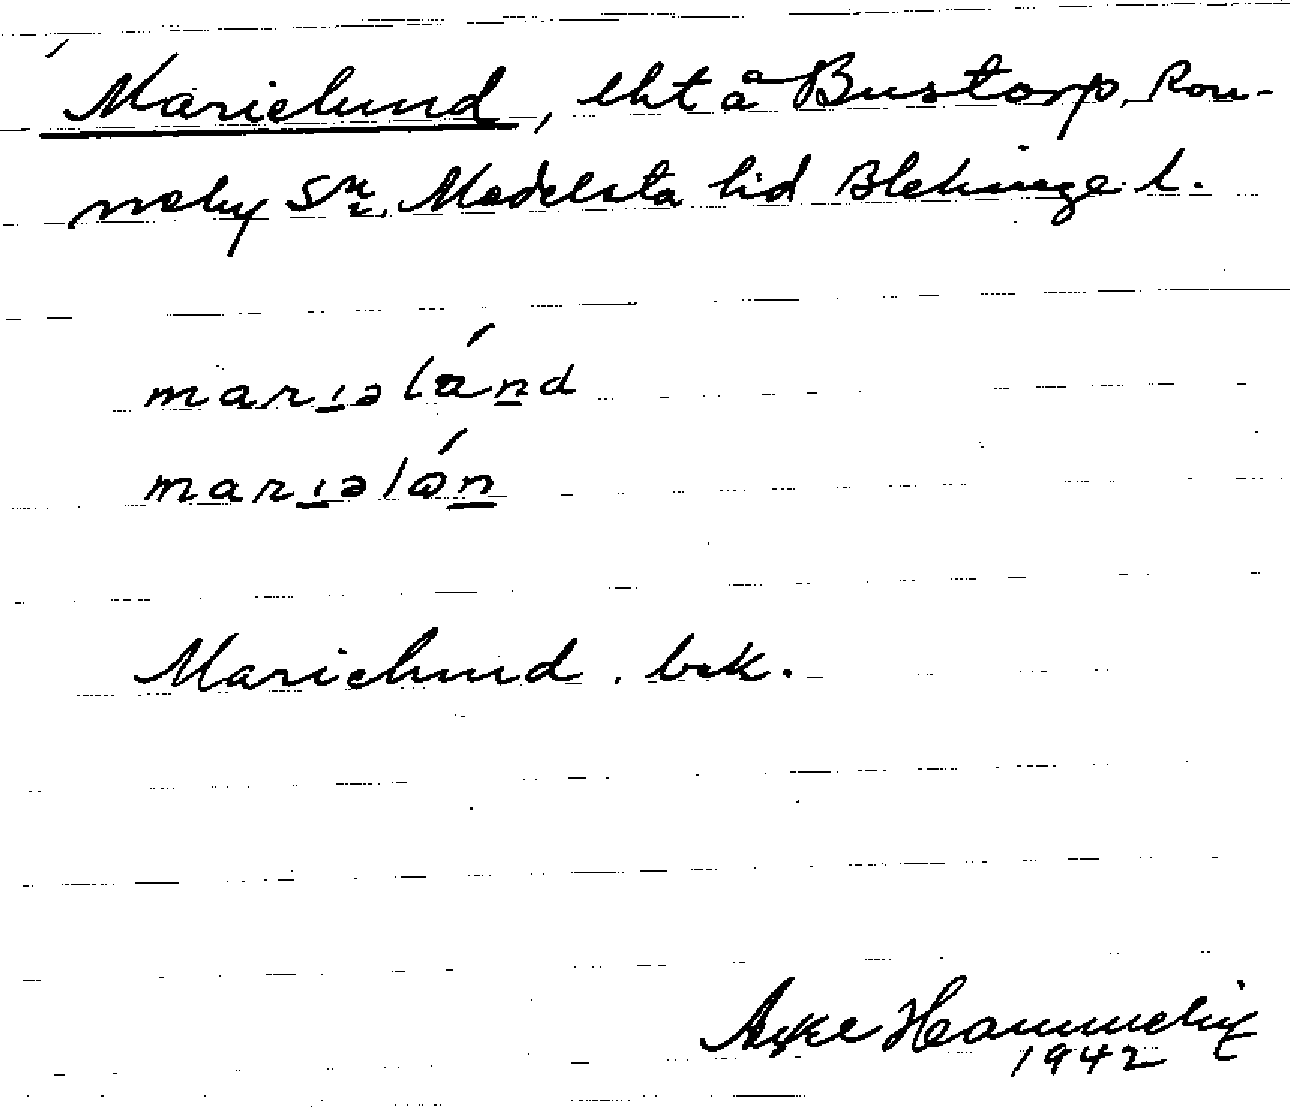 Marielund, lht å Bustorp, Ron-
neby Sn, Medelsta hd Blekinge l.
marıəlánd
marıəlón
Marielund. bek.
Åke Hammelig
1942